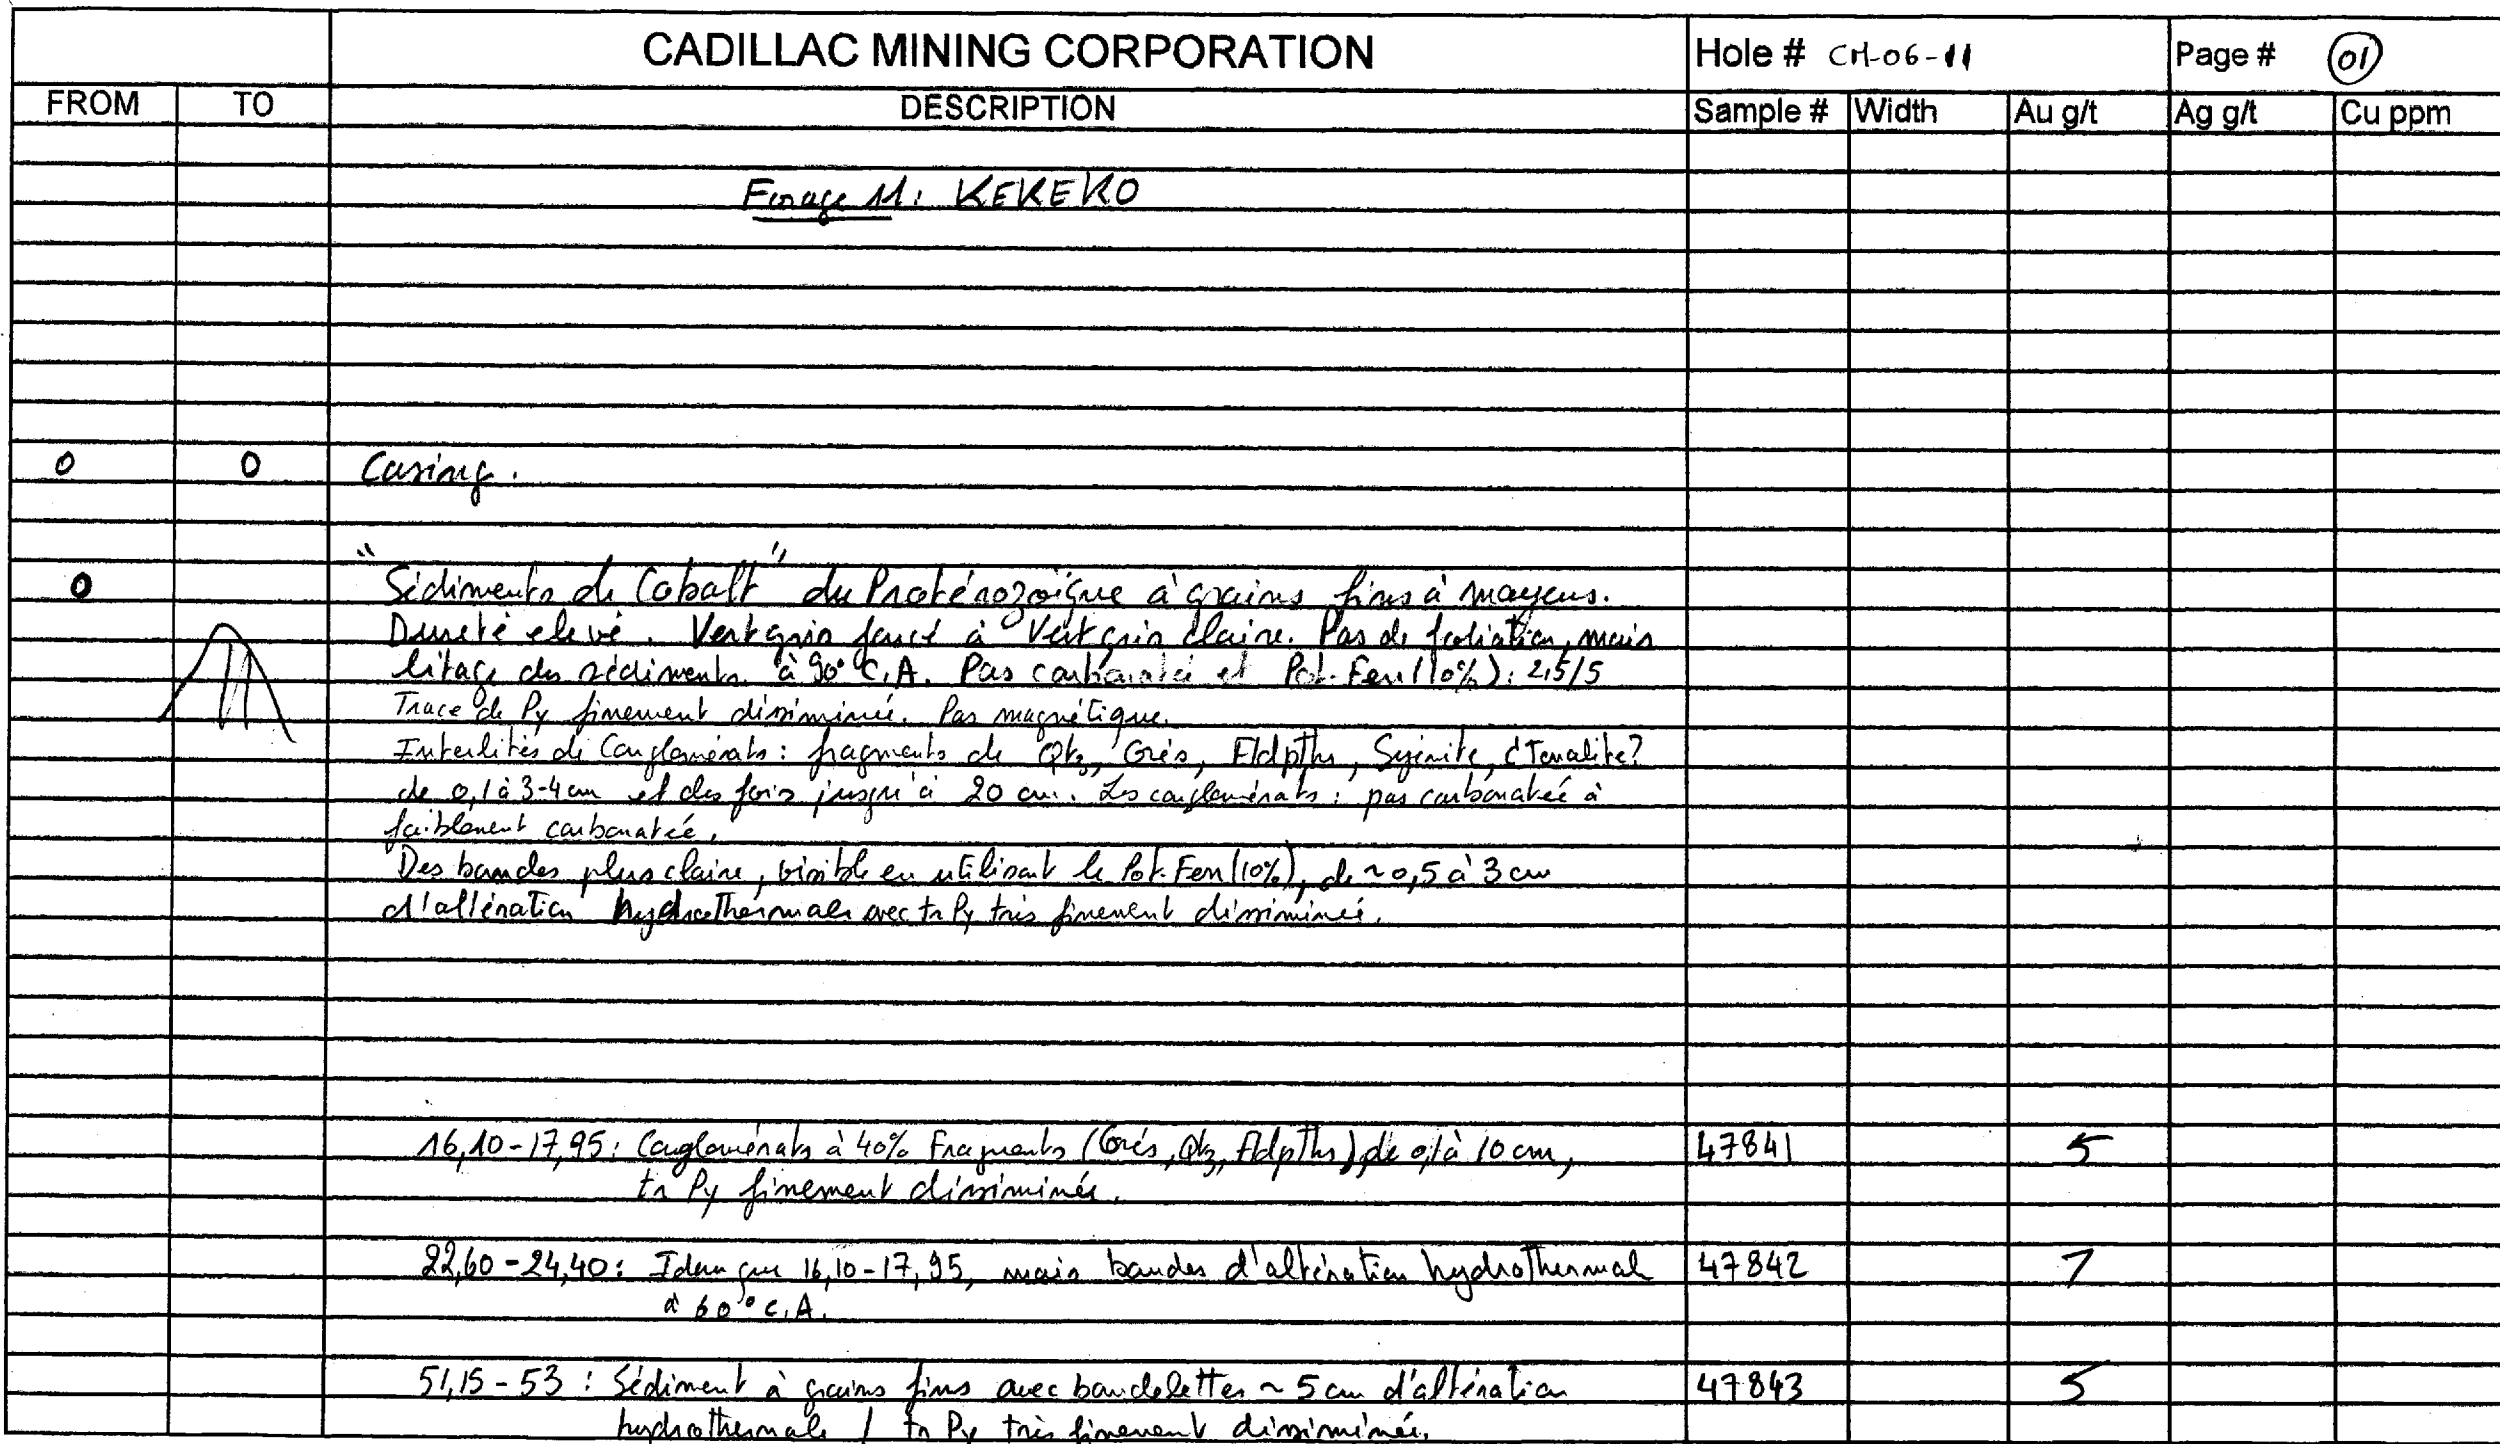 CADILLAC MINING CORPORATION Hole # CM-06-11 Page # 01
FROM TO DESCRIPTION Sample # Width Au g/t Ag g/t Cu ppm
Forage 11: KEKEKO
0 0 Casing.
0 "Sédiments de Cobalt" du Protérozoïque à grains fins à moyens.
Dureté elevé. Vert gris foncé à Vert gris claire. Pas de foliation, mais
litage des sédiments à 90° C.A. Pas carbonaté et Pot. Fen (10%): 2,5/5
Trace de Py finement dissiminée. Pas magnétique.
Interlités de Conglomérats: fragments de Qtz, Grés, Fldpths, Syénite, et Tonalite?
de 0,1 à 3-4 cm et des fois jusqu'à 20 cm. Les conglomérats: pas carbonateé à
faiblement carbonateé.
Des bandes plus claire, visible en utilisant le Pot. Fen (10%), de ~0,5 à 3 cm
d'altération hydrothermale avec tr Py très finement dissiminée.
16,10-17,95: Conglomérats à 40% Fragments (Grés, Qtz, Fldpths), de 0,1 à 10 cm, 47841 5
tr Py finement dissiminée.
22,60-24,40: Idem que 16,10-17,95, mais bandes d'altération hydrothermale 47842 7
à 60° C.A.
51,15-53: Sédiment à grains fins avec bandelettes ~ 5 cm d'altération 47843 5
hydrothermale / tr Py très finement dissiminée.